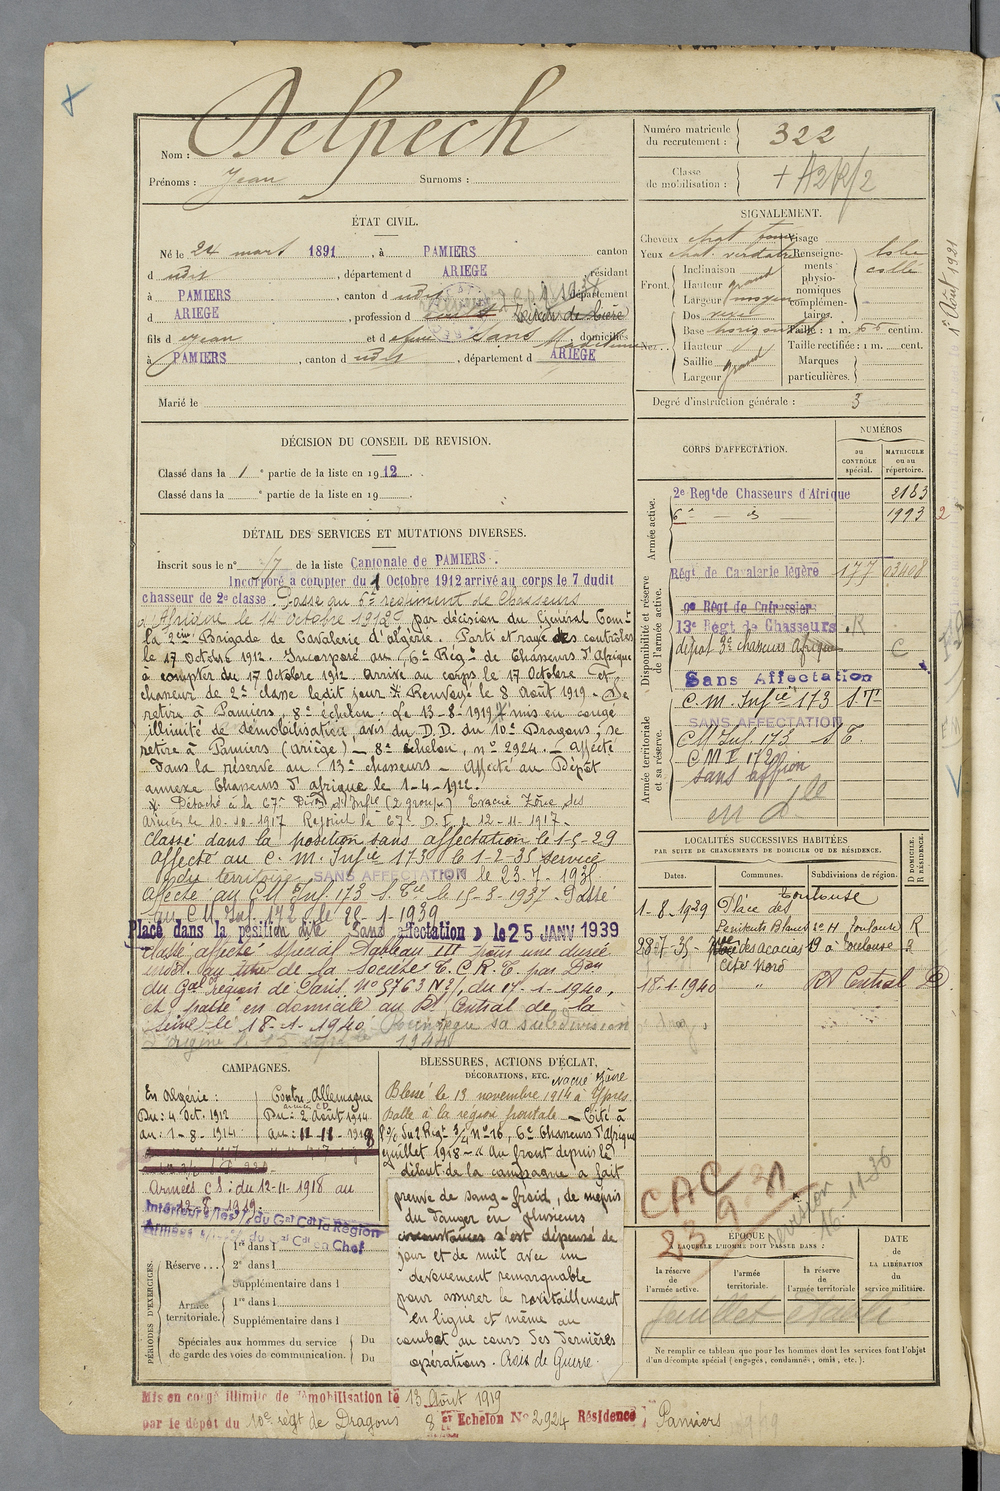 Nom : Delpech
Prénoms : Jean Surnoms :
Numéro matricule du recrutement : 322
Classe de mobilisation :
ÉTAT CIVIL.
Né le 24 mars 1891, à PAMIERS canton
d udit, département d ARIEGE résidant
à PAMIERS, canton d udit département
d ARIEGE, profession d
fils d Jean et d domiciliés
à PAMIERS, canton d udit, département d ARIEGE
Marié le
SIGNALEMENT.
Cheveux chat
Yeux chat. verdatre
Front.
Inclinaison
Hauteur grand
Largeur moyen
Nez.
Dos
Base horizontale
Hauteur
Saillie
Largeur grand
visage
Renseignements physionomiques complémentaires.
collé
Taille : 1 m. 66 centim.
Taille rectifiée : 1 m. cent.
Marques particulières.
Degré d'instruction générale : 3
1er Août 1921
DÉCISION DU CONSEIL DE REVISION.
Classé dans la 1e partie de la liste en 1912.
Classé dans la e partie de la liste en 19
CORPS D'AFFECTATION.
NUMÉROS
au CONTRÔLE spécial.
MATRICULE ou au répertoire.
Armée active.
2e Regt de Chasseurs d'Afrique 2183
6e — id — 1993 2
Disponibilité et réserve de l'armée active.
Régt de Cavalerie légère 177 03408
9e Régt de Cuirassiers
13e Regt de Chasseurs R
dépôt 3e chasseurs Afrique C
Sans Affectation
Armée territoriale et sa réserve.
C. m. Infie 173 S.T
SANS AFFECTATION
CM Inf. 173 S T
C M I 172
sans affon
DÉTAIL DES SERVICES ET MUTATIONS DIVERSES.
Inscrit sous le n° 17 de la liste Cantonale de PAMIERS.
Incorporé à compter du 1 Octobre 1912 arrivé au corps le 7 dudit
chasseur de 2e classe. Passé au 6e régiment de chasseurs
d'Afrique le 14 octobre 1912 par décision du Général Comt
la 2eme Brigade de Cavalerie d'algérie. Parti et rayé des contrôles
le 17 Octobre 1912. Incorporé au 6e Régt de Chasseurs d'Afrique
à compter du 17 Octobre 1912. arrivé au corps le 17 Octobre et
chasseur de 2e classe ledit jour. * Renvoyé le 8 Août 1919 - Se
retire à Pamiers, 8e échelon. Le 13-8-1919 mis en congé
illimité de démobilisation, avis du D.D. du 10e Dragons ; se
retire à Pamiers (Ariège) – 8e échelon, n° 2924. – Affecté
dans la réserve au 13e chasseurs – Affecté au Dépôt
annexe Chasseurs d'afrique le 1-4-1922.
* Détaché à la 67e Divon d'Infie (2 groupe) Evacué Zône des
armées le 10-10-1917 Rejoint la 67e D.I. le 12-11-1917.
Classé dans la position sans affectation le 1-5-29
Affecté au C. M. Infie 173 le 1-2-35 service
SANS AFFECTATION le 23-7-193
Affecté au CM Inf. 173 S. T le 15-3-1937. Passé
au CM Inf. 172 le 22-1-1939
Placé dans la position dite « Sans affectation » le 25 JANV 1939
Classé affecté spécial Tableau III pour une durée
indét. au titre de la Société T.C.R.T. par Don
du Gal Région de Paris N° 5763 N2/, du 17-1-1940,
et passé en domicile au Bt Central de la
Seine le 18-1-1940. Réintègre sa subdivision
d'origine le 15 1940
LOCALITÉS SUCCESSIVES HABITÉES
PAR SUITE DE CHANGEMENTS DE DOMICILE OU DE RÉSIDENCE.
D DOMICILE. R RÉSIDENCE.
Dates. Communes. Subdivisions de région.
1-8-1929 Toulouse Place des Pénitents Blancs n° 11 Toulouse R
28-7-35 des acacias 19 à Toulouse
Cité Nord
18-1-1940 " Bt Central D
CAMPAGNES.
En Algérie :
Du : 4 Oct. 1912
au : 1-8-1914
Contre Allemagne
Du : 2 Août 1914
au : 11-11-1918
Armées CS : du 12-11-1918 au
BLESSURES, ACTIONS D'ÉCLAT,
DÉCORATIONS, ETC.
Blessé le 13 novembre 1914 à Ypres
balle à la région frontale – Cité à
l'O/ du Régt n° 16, 6e Chasseurs d'Afrique
juillet 1918 – « Au front depuis le
début de la campagne a fait
preuve de sang-froid, de mépris
du danger en plusieurs
circonstances s'est dépensé de
jour et de nuit avec un
dévouement remarquable
pour assurer le ravitaillement
en ligne et même au
combat au cours des dernières
opérations. Croix de Guerre.
CAC
23 9 21
révision 16-11-36
PÉRIODES D'EXERCICES.
Réserve
1re dans l
2e dans l
Supplémentaire dans l
Armée territoriale.
1re dans l
Supplémentaire dans l
Spéciales aux hommes du service de garde des voies de communication.
Du
Du
ÉPOQUE
À LAQUELLE L'HOMME DOIT PASSER DANS :
la réserve de l'armée active.
l'armée territoriale.
la réserve de l'armée territoriale
DATE DE LA LIBÉRATION du service militaire.
Ne remplir ce tableau que pour les hommes dont les services font l'objet
d'un décompte spécial (engagés, condamnés, omis, etc.).
Mis en congé illimité de démobilisation le 13 Août 1919
par le dépôt du 10e régt de Dragons 8e Echelon N° 2924 Résidence Pamiers